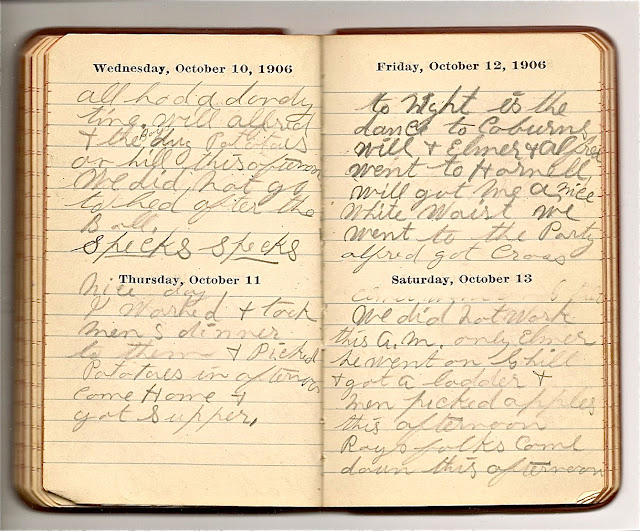 Wednesday, October 10, 1906
all had a dandy
time. will alfred
& the Boys dug Potatoes
on hill this afternoon
We did not go
to bed after the
Ball.
Specks Specks
Thursday, October 11
Nice day
I Washed & took
men s dinner
to them & Picked
Potatoes in afternoon
Come Home &
got Supper.
Friday, October 12, 1906
to Night is the
dance to Coburns
Will & Elmer & alfred
went to Hornell
Will got me a nice
White Waist we
went to the Party
alfred got Cross
Saturday, October 13
We did not Work
this A.M. only Elmer
he went on hill
& got a ladder &
men picked apples
this afternoon
Rays folks Come
down this afternoon